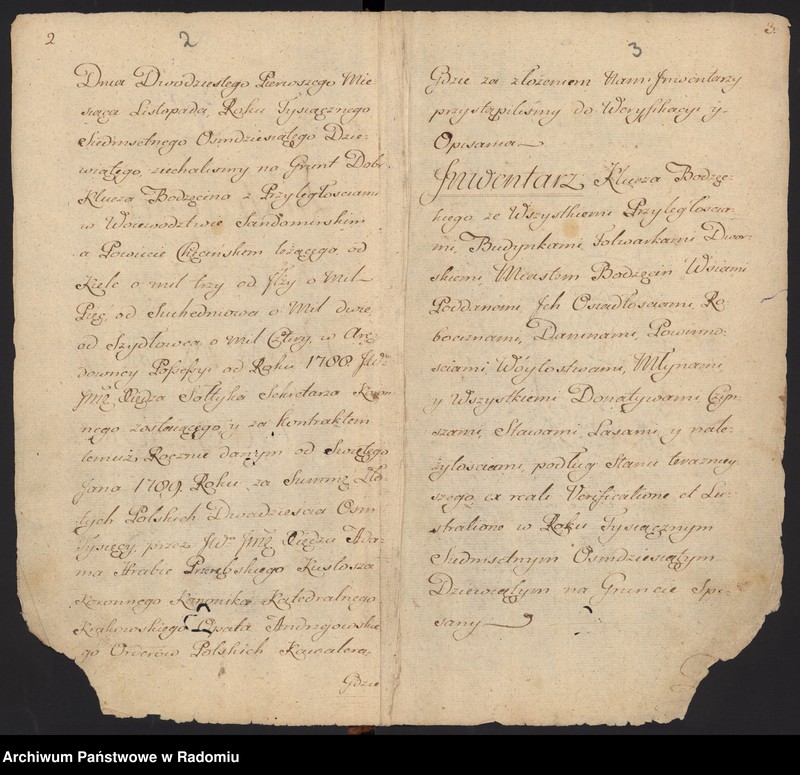 2
2
Dnia Dwódziestego Pierwszego Mie-
siąca Listopada Roku Tysiącznego
Siedmsetnego Osmdziesiątego Dzie-
wiątego, ziechalismy na Grunt Dobr
Klucza Bodzęcina z Przyległosciami
w Woiewodztwie Sandomirskim
a Powiecie Chęcinskem leżącego, od
Kielc o mil trzy od Iłży o Mil
Pięć, od Suchedniowa o Mil dwie,
od Szydłowca o Mil Cztery, w Arę-
downey Possessyi od Roku 1788. JWo
Jmę Xiędza Sołtyka Sekretarza Koron-
nego zostaiącego, y za kontraktem
temuż, Rocznie danym od Swiętego
Jana 1789. Roku, za Summę Zło-
tych Polskich Dwadziescia Osm
Tysięcy, przez JWo Jmę Xiędza Ada-
ma Hrabię Przerębskiego Kustosza
Koronnego Kanonika Katedralnego
Krakowskiego Opata Andrzejowskie-
go Orderów Polskich Kawalera,
Gdzie
3
3.
Gdzie za złożeniem Nam Inwentarzy
przystąpiliśmy do Weryfikacyi y
Opisania
Inwentarz Klucza Bodzęc-
kiego ze Wszystkiemi Przyległoscia-
mi, Budynkami, Folwarkami Dwor-
skiemi Miastem Bodzęcin Wsiami
Poddanemi Ich Osiadłosciami, Ro-
bociznami, Daninami, Powinno-
sciami, Wóytostwami, Młynami,
y Wszystkiemi Donatywami, Czyn-
szami, Stawami, Lasami, y nale-
żytosciami, podług Stanu teraźniey-
szego, ex reali Verificatione et Lu-
stratione w Roku Tysiącznym
Siedmsetnym Osmdziesiątym
Dziewiątym na Gruncie Spi-
sany
Archiwum Państwowe w Radomiu